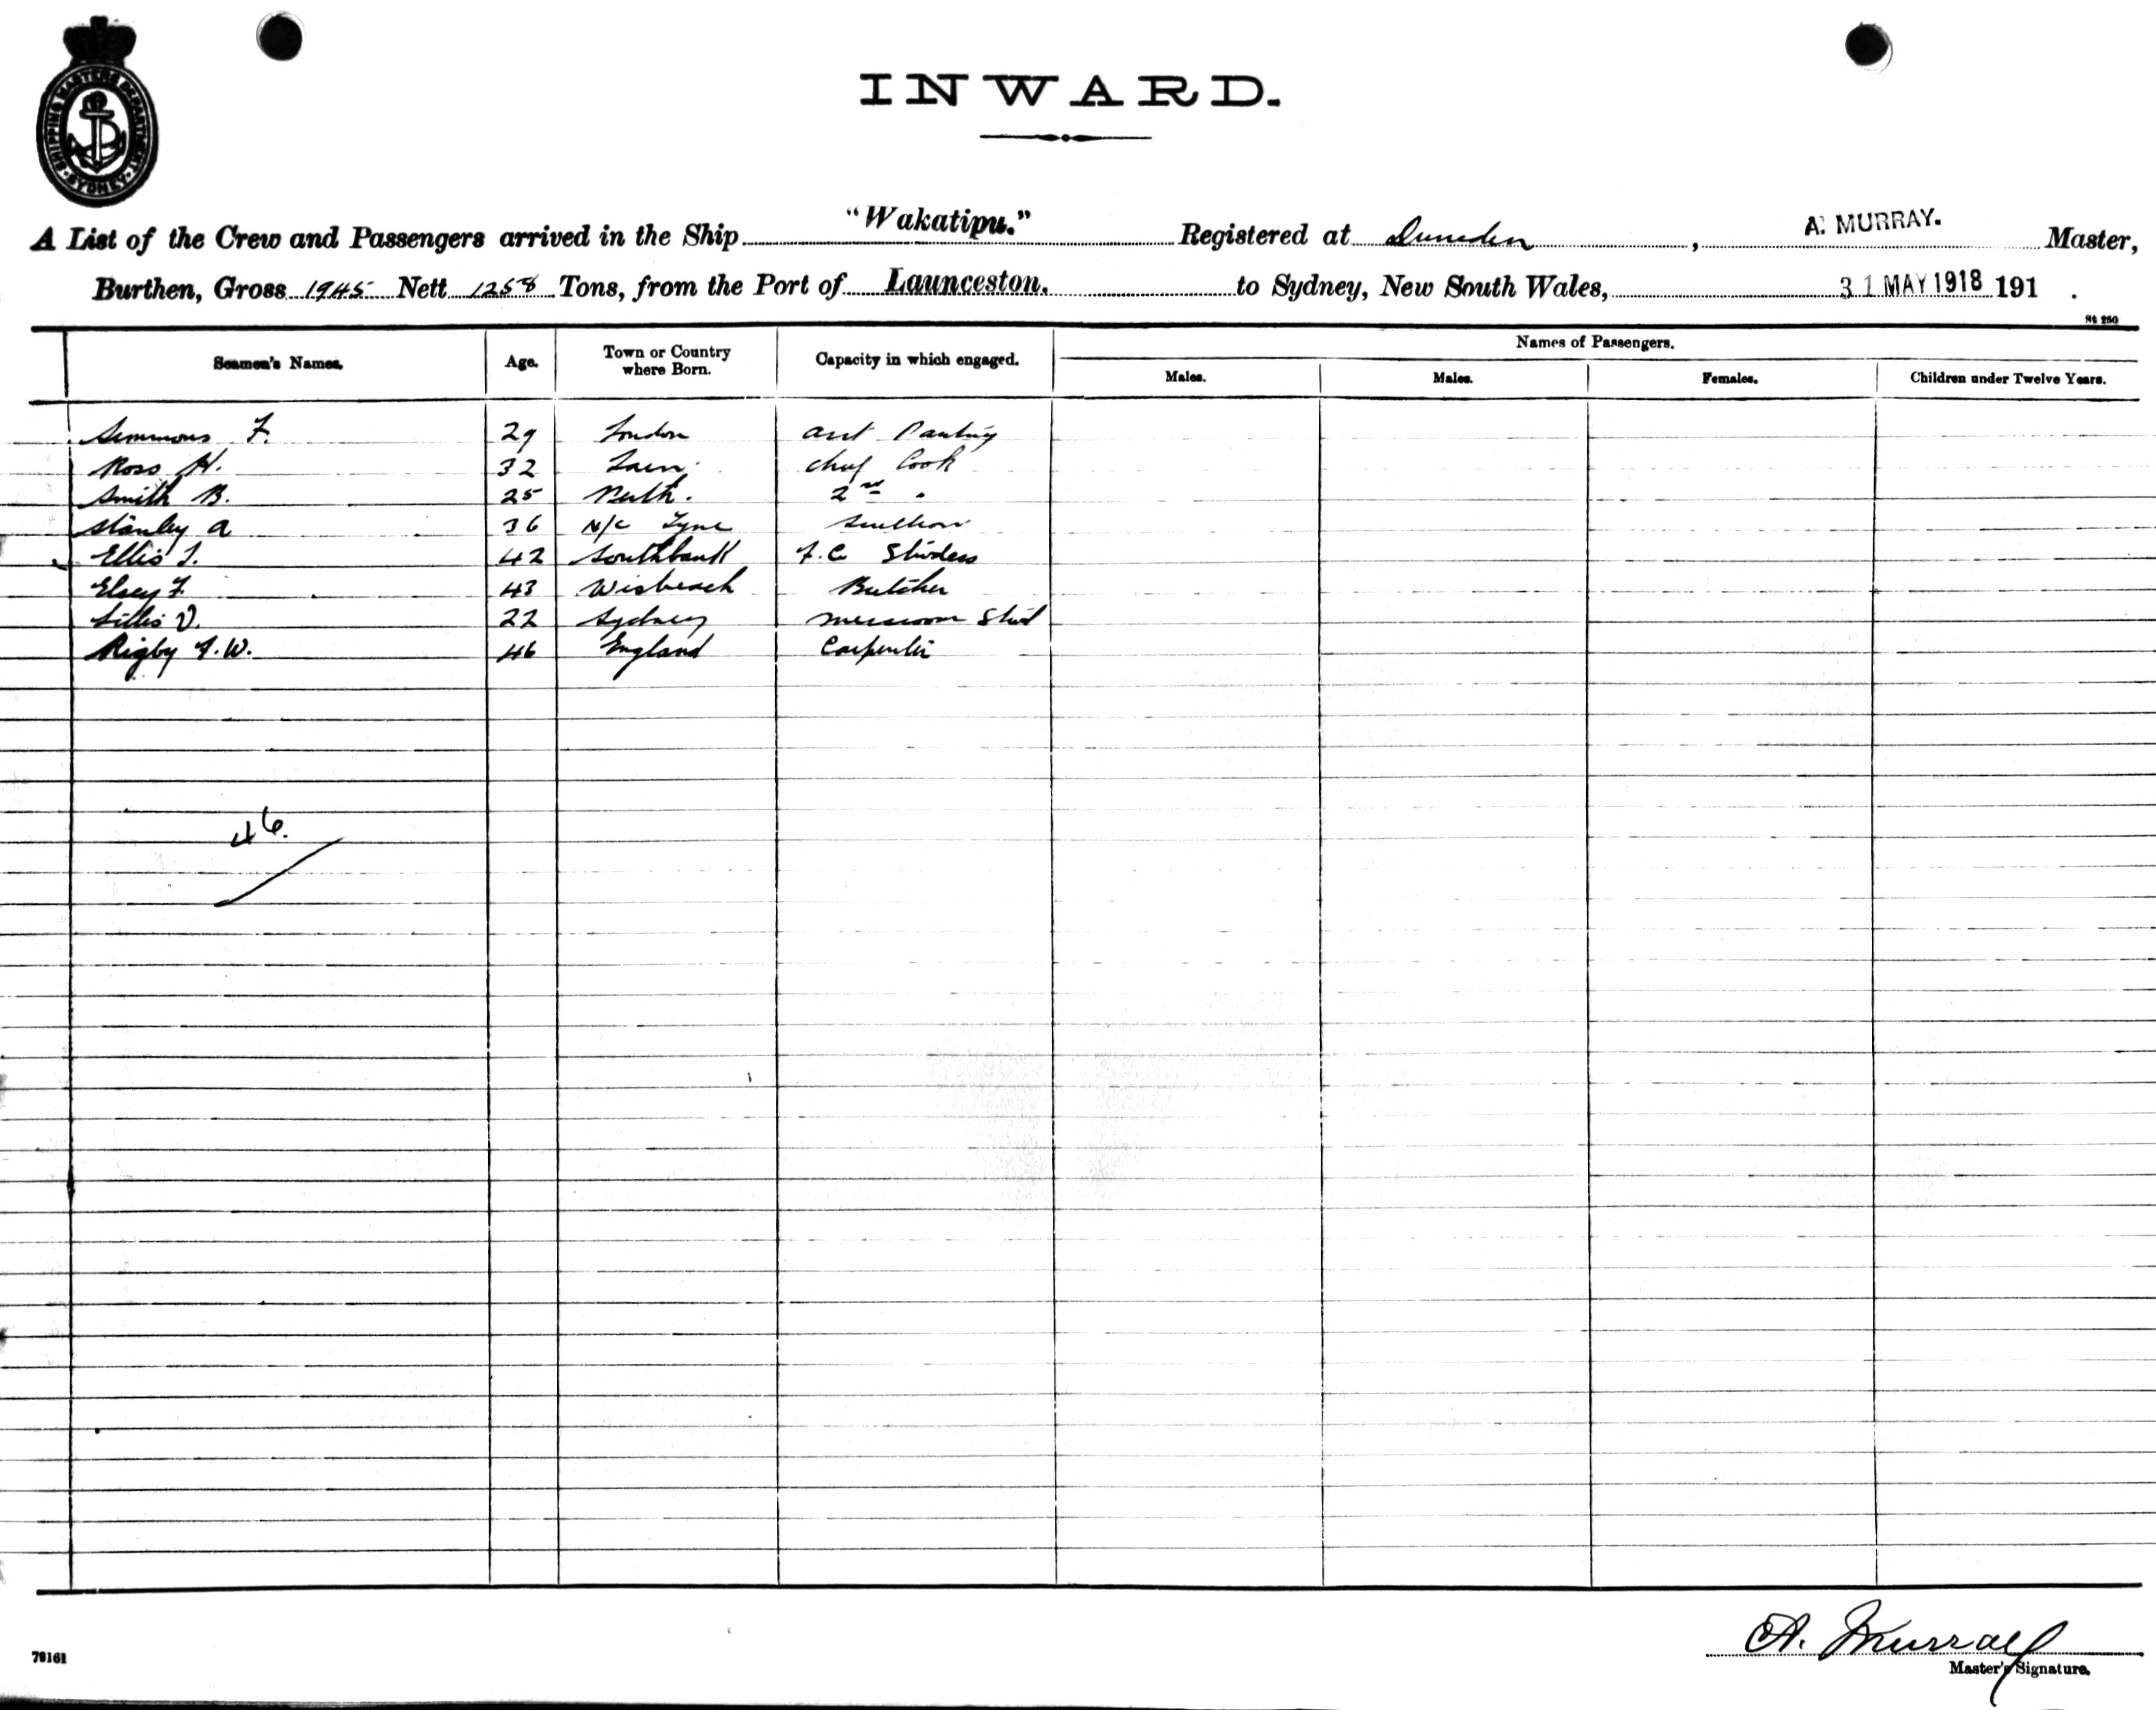 SHIPPING MASTERS DEPARTMENT SYDNEY
INWARD.
A List of the Crew and Passengers arrived in the Ship "Wakatipu." Registered at Dunedin, A. MURRAY. Master,
Burthen, Gross 1945 Nett 1258 Tons, from the Port of Launceston. to Sydney, New South Wales, 31 MAY 1918 191 .
St 250
Seamen's Names. Age. Town or Country where Born. Capacity in which engaged. Names of Passengers.
Males. Males. Females. Children under Twelve Years.
Simmons F. 29 London
Ross H. 32 Chief Cook
Smith B. 25 Perth. 2nd "
Stanley A 36 N/C Tyne
Ellis 42 Southbank F.C. Stwdess
Elsey F. 43 Wisbeach Butcher
22 Sydney Messroom Stwd
Rigby F.W. 46 England Carpenter
46.
A. Murray
Master's Signature.
79161